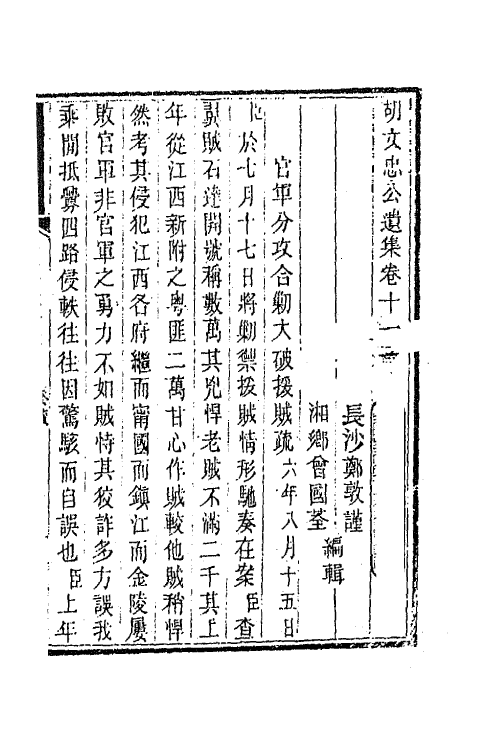 胡文忠公遺集卷十一
長沙鄭敦謹
湘鄉曾國荃
編輯
官軍分攻合勦大破援賊疏六年八月十五日
臣於七月十七日將勦禦援賊情形馳奏在案臣查
賊石達開號稱數萬其兇悍老賊不滿二千其上
年從江西新附之粵匪二萬甘心作賊較他賊稍悍
然考其侵犯江西各府繼而甯國而鎮江而金陵屢
敗官軍非官軍之勇力不如賊恃其狡詐多方誤我
乘間抵釁四路侵軼往往因驚駭而自誤也臣上年